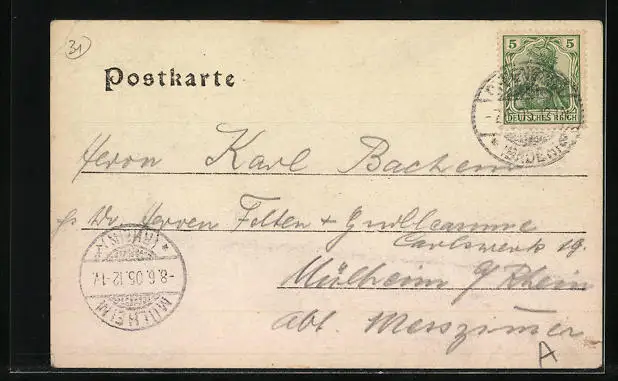 31
Postkarte
5 5
DEUTSCHES REICH
(BADEN)
Herrn Karl Bachem
Herren Felten + Guilleaume
Carlswerk
Mülheim a/Rhein
Abt. Messzimmer
MÜLHEIM
-8.6.05.12-1
(RHEIN)
A